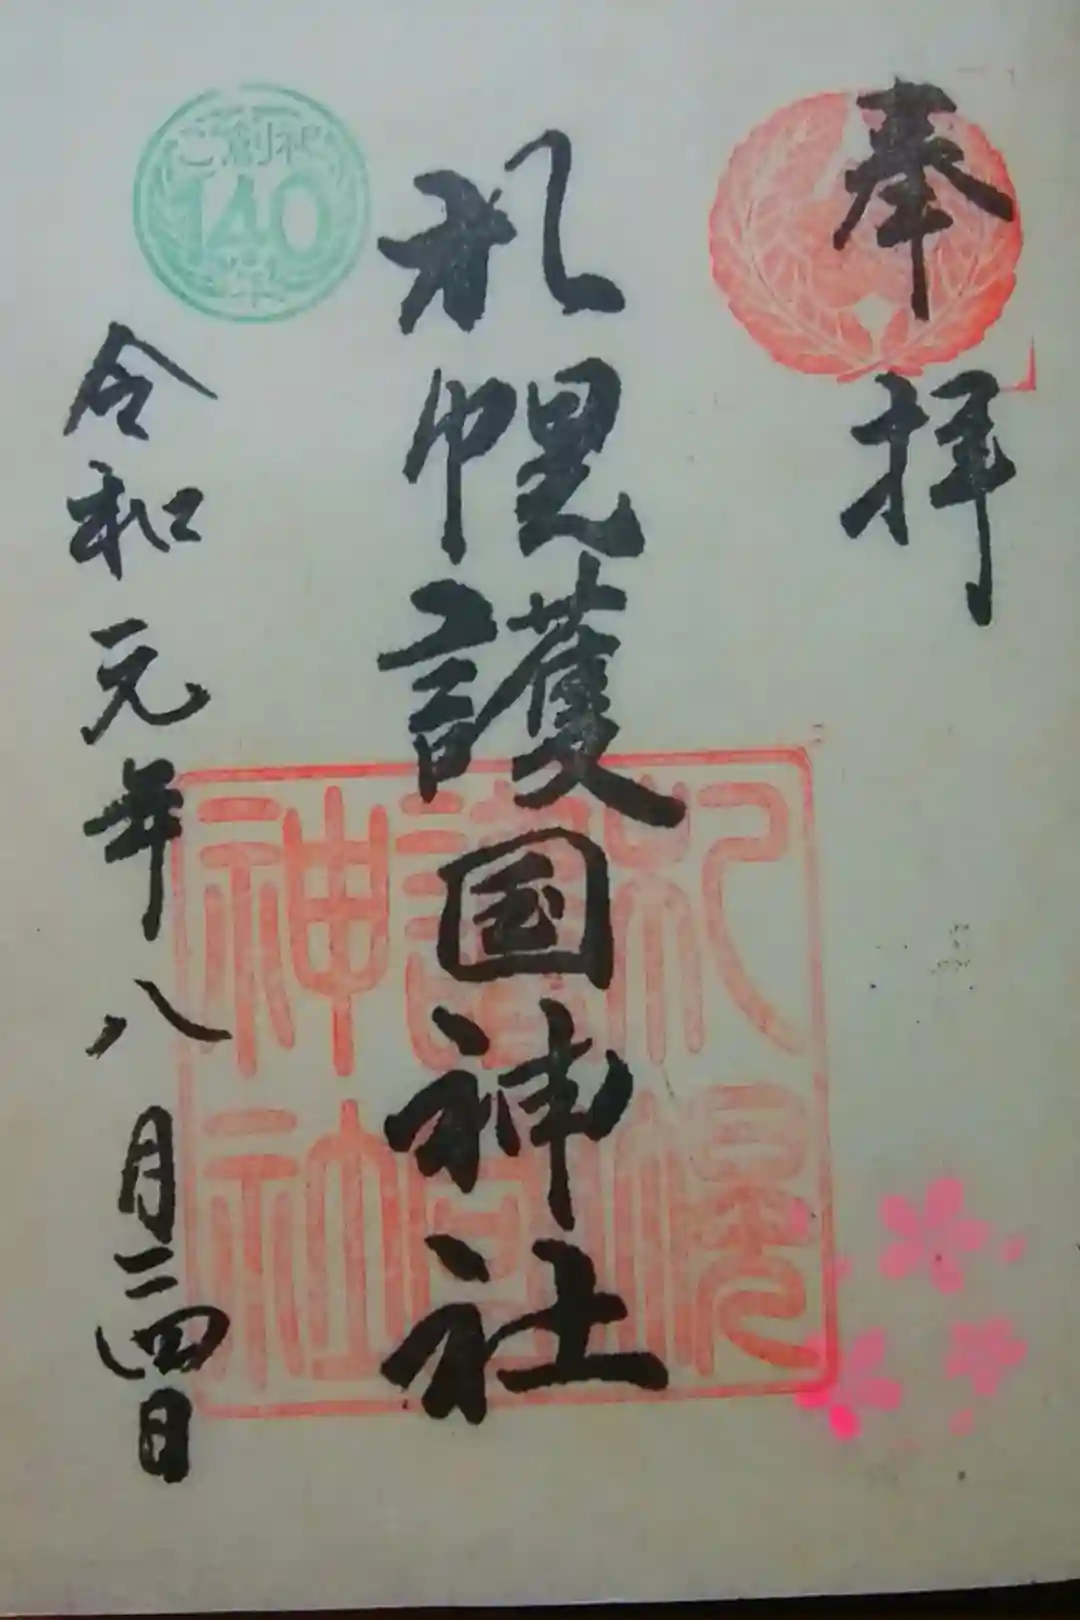 奉拝
札幌護国神社
札幌
護国
神社
ご創祀
140
年
令和元年八月二四日